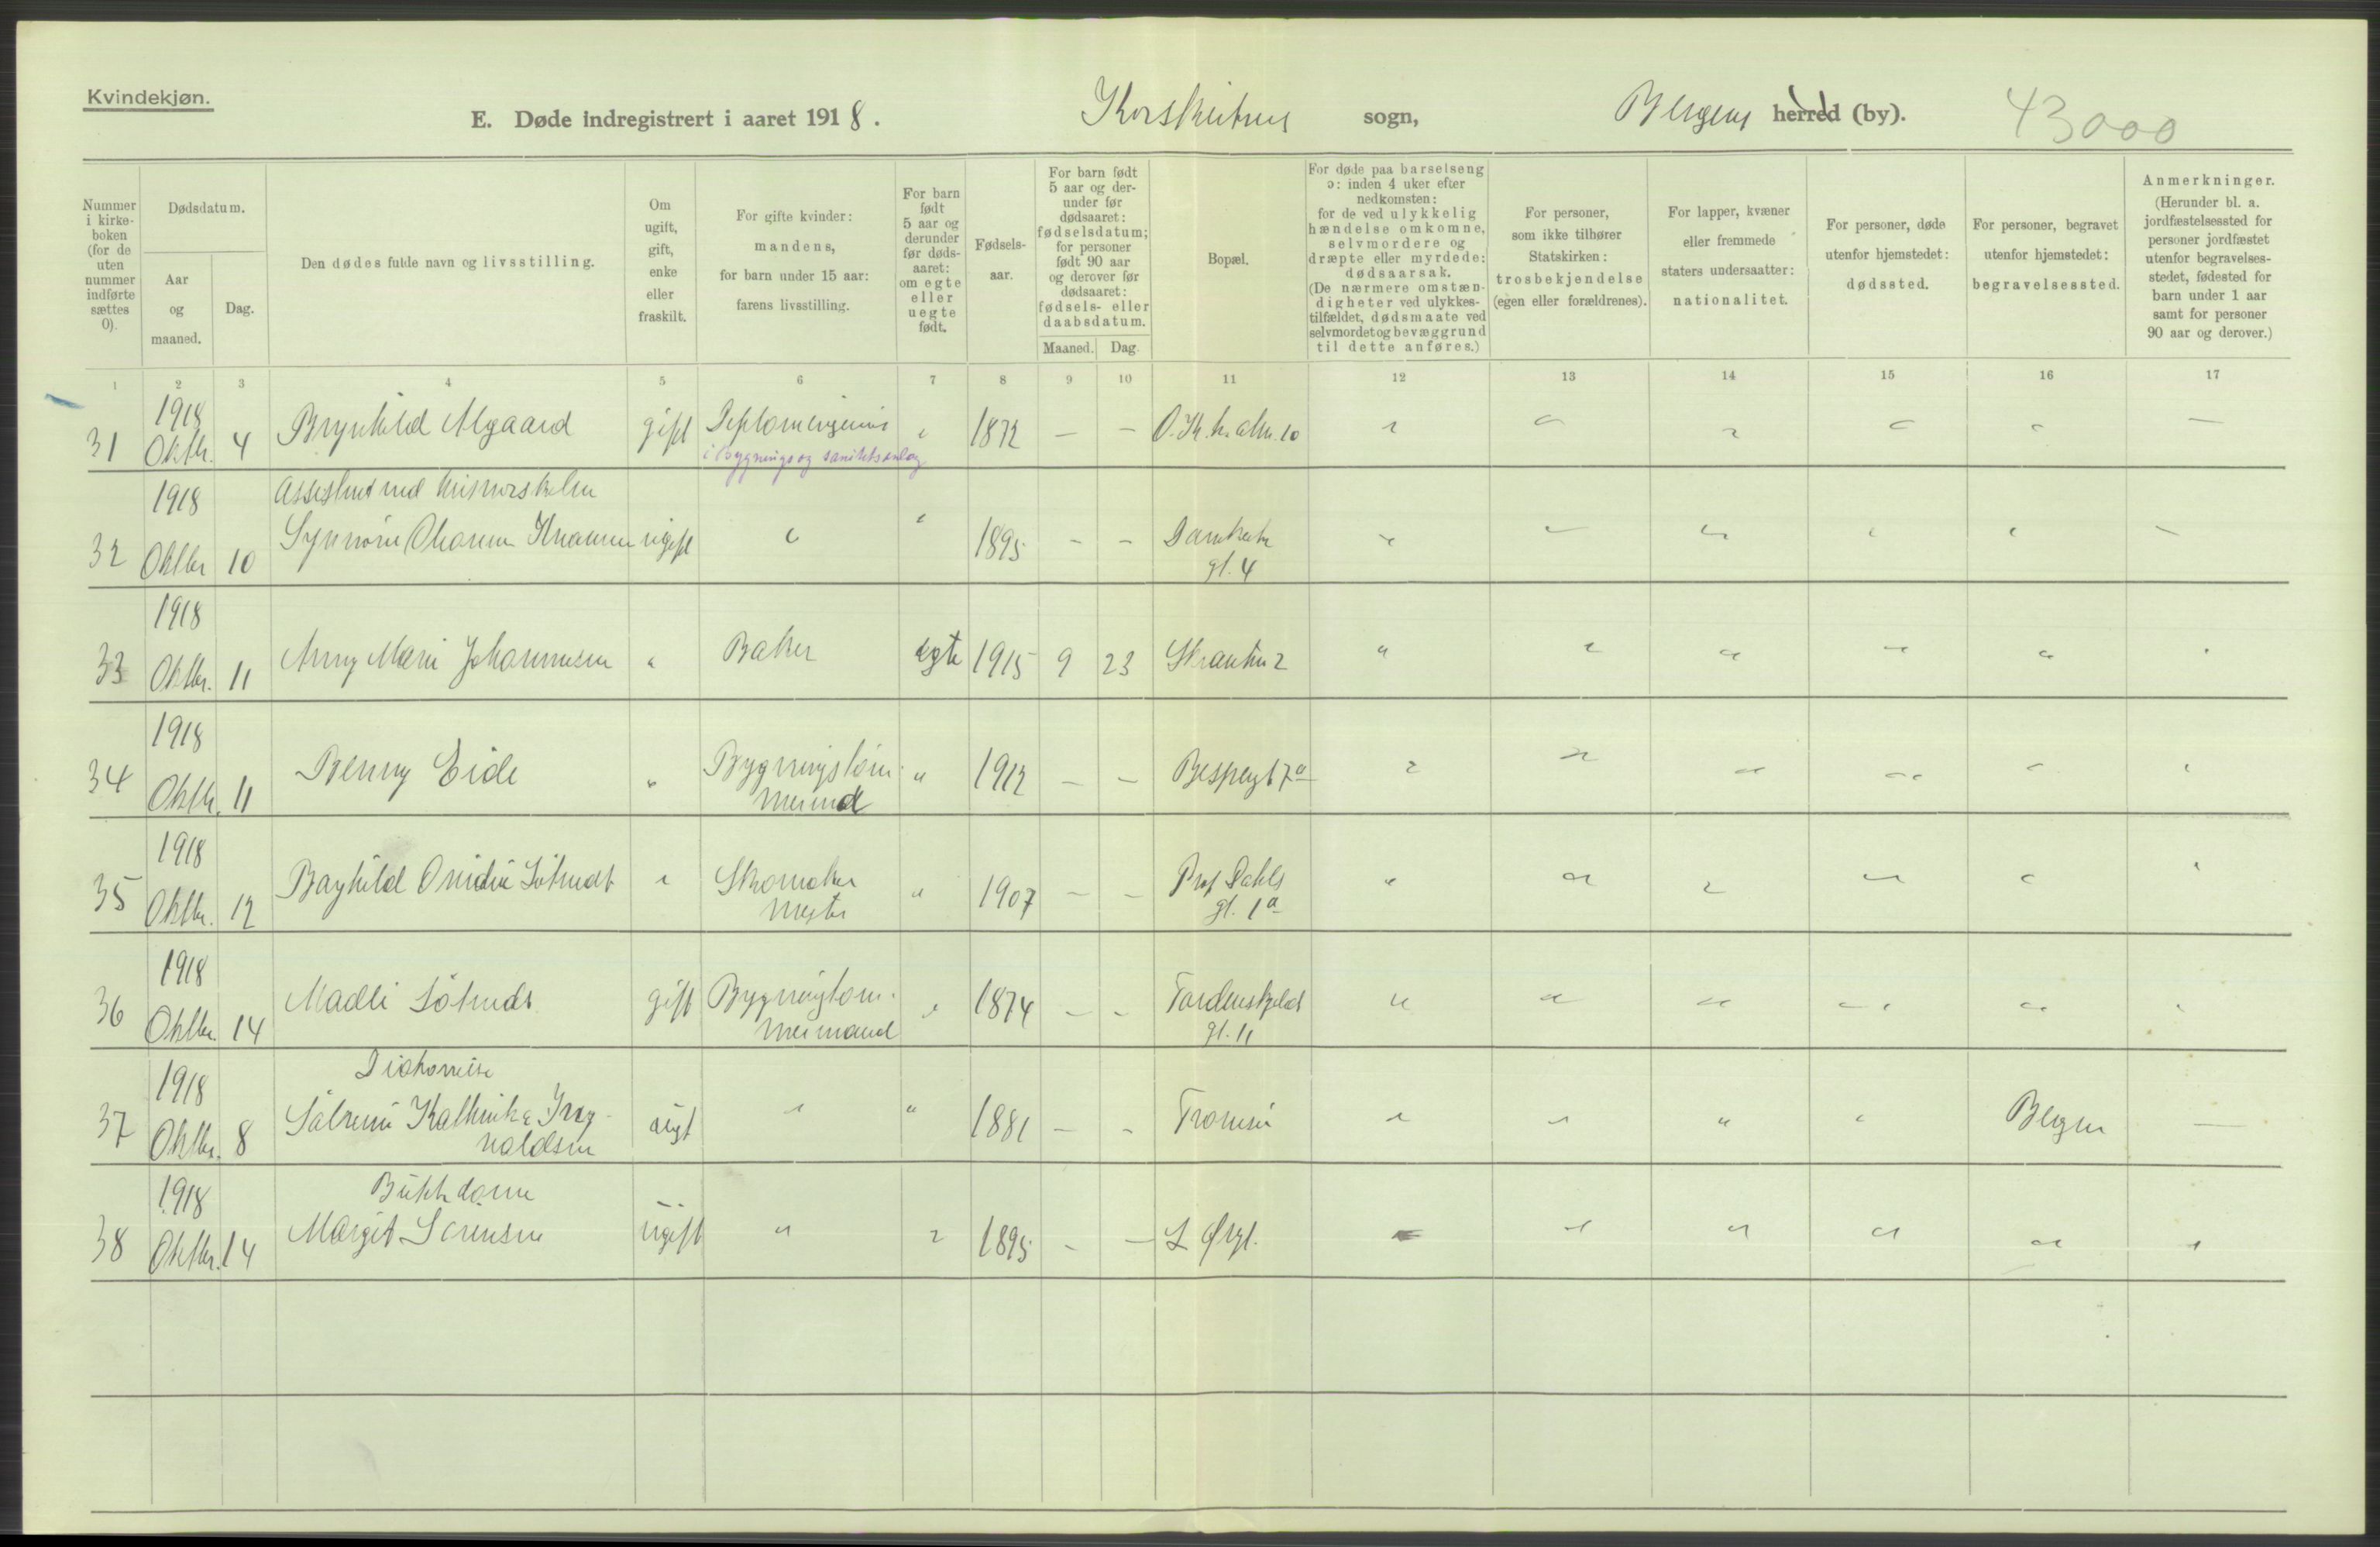 Kvindekjøn.
E. Døde indregistrert i aaret 1918. Korskirkens sogn, Bergens herred (by). 43000
Nummer i kirkeboken (for de uten nummer indførte sættes 0).
Dødsdatum.
Aar og maaned.
Dag.
Den dødes fulde navn og livsstilling.
Om ugift, gift, enke eller fraskilt.
For gifte kvinder: mandens, for barn under 15 aar: farens livsstilling.
For barn født 5 aar og derunder før dødsaaret: om egte eller uegte født.
Fødselsaar.
For barn født 5 aar og derunder før dødsaaret: fødselsdatum; for personer født 90 aar og derover før dødsaaret: fødsels- eller daabsdatum.
Maaned. Dag.
Bopæl.
For døde paa barselseng ɔ: inden 4 uker efter nedkomsten: for de ved ulykkelig hændelse omkomne, selvmordere og dræpte eller myrdede: dødsaarsak. (De nærmere omstændigheter ved ulykkestilfældet, dødsmaate ved selvmordet og bevæggrund til dette anføres.)
For personer, som ikke tilhører Statskirken: trosbekjendelse (egen eller forældrenes).
For lapper, kvæner eller fremmede staters undersaatter: nationalitet.
For personer, døde utenfor hjemstedet: dødssted.
For personer, begravet utenfor hjemstedet: begravelsessted.
Anmerkninger. (Herunder bl. a. jordfæstelsessted for personer jordfæstet utenfor begravelsesstedet, fødested for barn under 1 aar samt for personer 90 aar og derover.)
1 2 3 4 5 6 7 8 9 10 11 12 13 14 15 16 17
31 1918 Oktbr. 4 Brynhild Algaard gift Diplomingeniør " 1872 — —
i Bygnings og sanitetsanlæg
1918 Assistent ved
32 Oktbr 10 ugift " " 1895 - - Damkirke
gl. 4
1918
33 Oktbr. 11 Anny Marie Johannesen " Baker egte 1915 9 23 "
1918
34 Oktbr. 11 Benny Eide " Bygningstøm- " 1912 — —
mermand
1918
35 Oktbr. 12 Skomaker " 1907 — — Prof Dahls
mester gt. 1a
1918
36 Oktbr. 14 Madli gift Bygningtøm- " 1874 — - Tordenskjolds
mermand gt. 11
1918 Diakonisse
37 Oktbr. 8 ugt " " 1881 — - Tromsø " Bergen —
1918 Buttikdame
38 Oktbr. 14 Margit Sørensen ugift " " 1895 - —